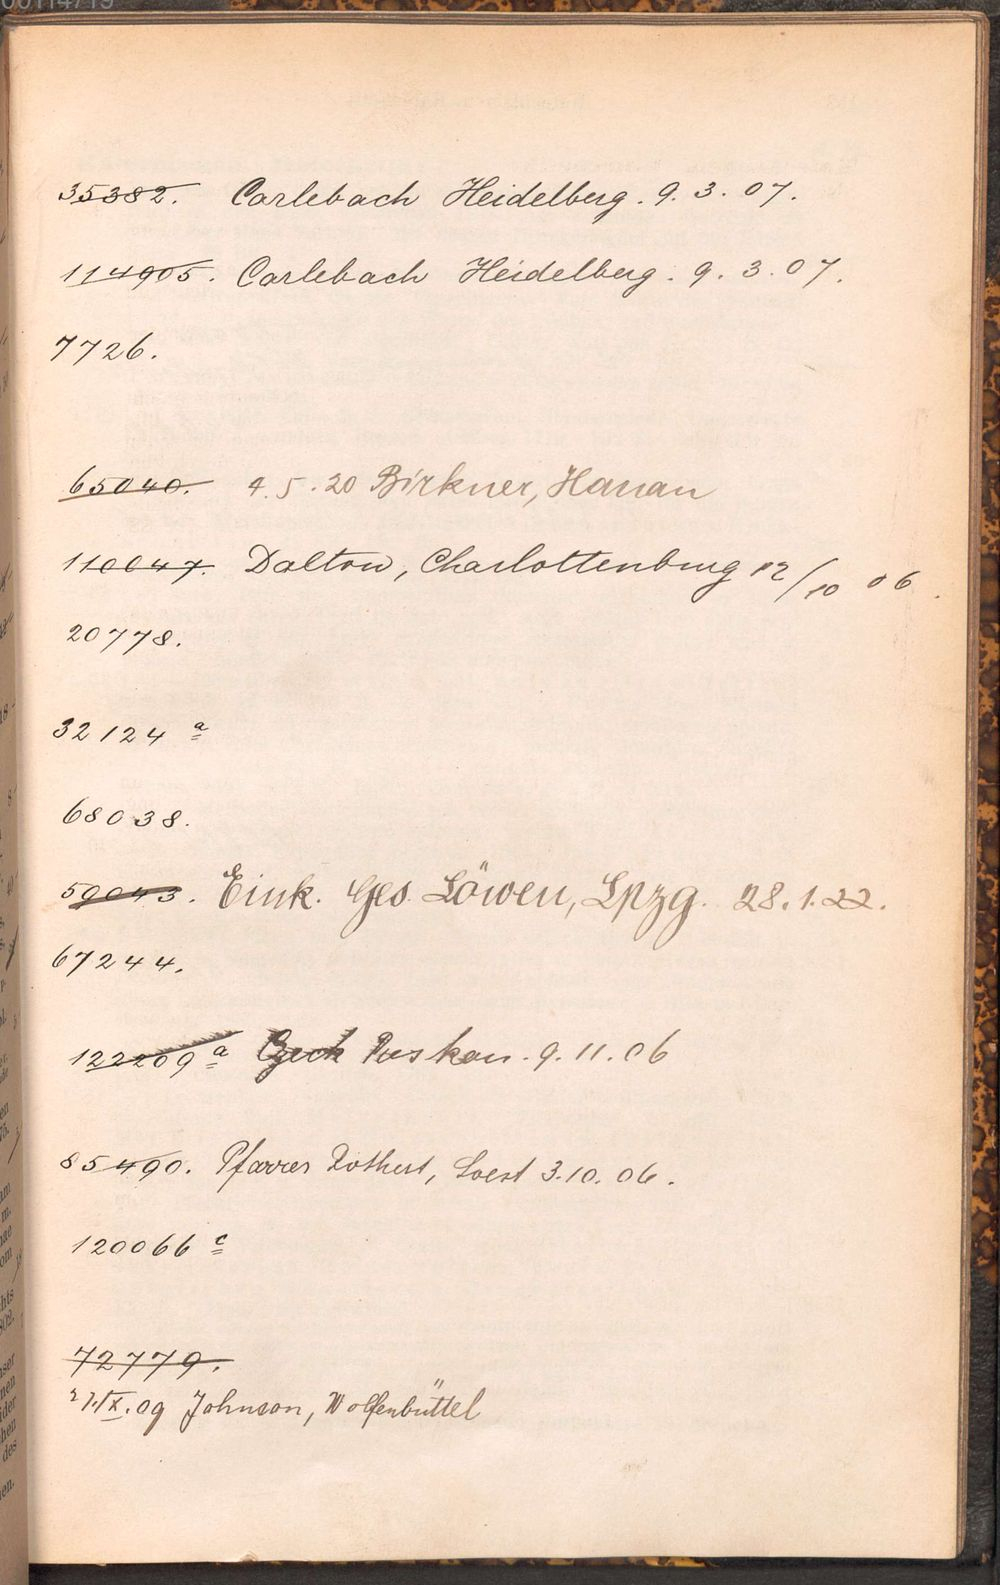 35382. Carlebach Heidelberg. 9. 3. 07.
114905. Carlebach Heidelberg. 9. 3. 07.
7726.
65040. 4. 5. 20 Birkner, Hanau
110047. Dalton, Charlottenburg 12/10 06.
20778.
32124 a
68038.
59043. Eink. Ges. Löwen, Lpzg. 28. 1. 22.
67244.
122209 a 9. 11. 06
85490. Pfarrer Rothert, Soest 3. 10. 06.
120066 c
72779.
27.IX.09 Johnson, Wolfenbüttel